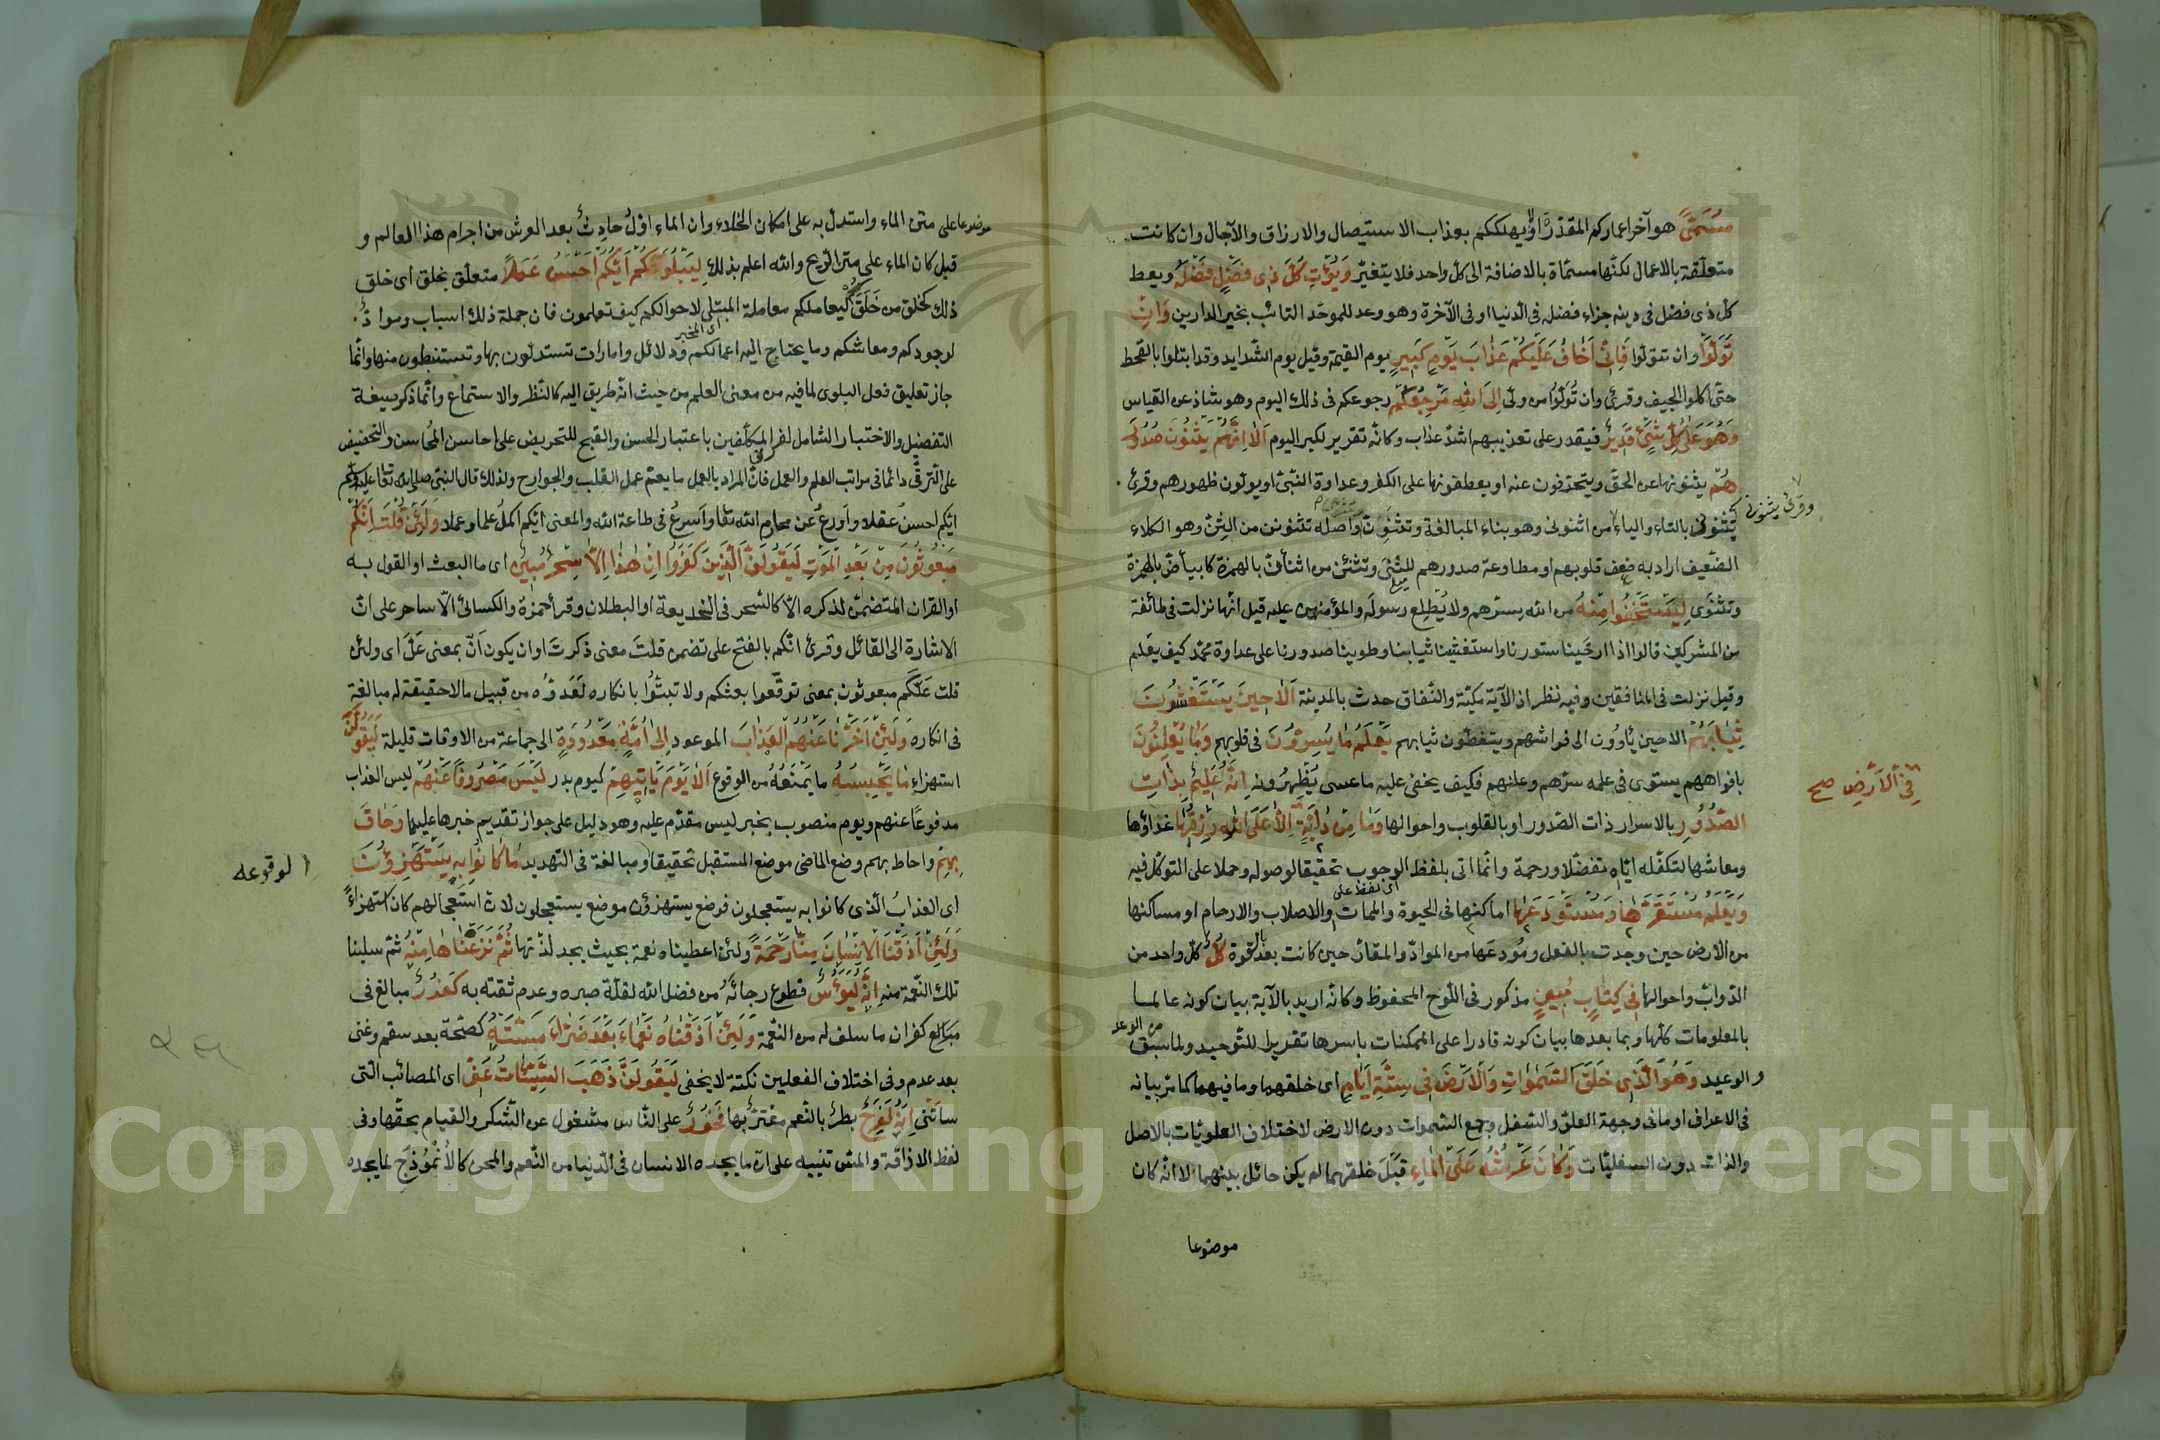 مُسَمًّى هو آخر اعماركم المقدرة او لا يهلككم بعذاب الاستيصال والارزاق والآجال وان كانت
متعلقة بالاعمال لكنها مسماة بالاضافة الى كل واحد فلا يتغير وَيُؤْتِ كُلَّ ذِى فَضْلٍ فَضْلَهُ ويعط
كل ذى فضل فى دينه جزاء فضله فى الدنيا او فى الآخرة وهو وعد للموحد التائب بخير الدارين وَاِنْ
تَوَلَّوْا وان تتولوا فَاِنِّى اَخَافُ عَلَيْكُمْ عَذَابَ يَوْمٍ كَبِيرٍ يوم القيمة وقيل يوم الشدايد وقد ابتلوا بالقحط
حتى اكلوا الجيف وقرئ وان تُوَلُّوْا من ولى اِلَى اللهِ مَرْجِعُكُمْ رجوعكم فى ذلك اليوم وهو شاذ عن القياس
وَهُوَ عَلٰى كُلِّ شَىْءٍ قَدِيرٌ فيقدر على تعذيبهم اشد عذاب وكانه تقرير لكبر اليوم اَلَا اِنَّهُمْ يَثْنُونَ صُدُورَ
هُمْ يثنونها عن الحق وينحرفون عنه او يعطفونها على الكفر وعداوة النبى او يولون ظهورهم وقرئ
يثنونى بالتاء والياء من اثنونى وهو بناء المبالغة وتثنون واصله تثنونن من الثن وهو الكلاء
وقرئ يثنونى
الضعيف اراد به ضعف قلوبهم او مطاوعة صدورهم للثنى وتثنئن من اثنأن بالهمزة كابيأض بالهمزة
وتثنوى لِيَسْتَخْفُوا مِنْهُ من الله بسرهم ولا يُطْلِع رسوله والمؤمنين عليه قيل انها نزلت فى طائفة
من المشركين قالوا اذا ارخينا ستورنا واستغشينا ثيابنا وطوينا صدورنا على عداوة محمد كيف يعلم
وقيل نزلت فى المنافقين وفيه نظر اذ الآية مكية والنفاق حدث بالمدينة اَلَا حِينَ يَسْتَغْشُونَ
ثِيَابَهُمْ الا حين يأوون الى فراشهم ويتغطون ثيابهم يَعْلَمُ مَا يُسِرُّونَ فى قلوبهم وَمَا يُعْلِنُونَ
بافواههم يستوى فى علمه سرهم وعلنهم فكيف يخفى عليه ما عسى يُظْهِرُونه اِنَّهُ عَلِيمٌ بِذَاتِ
الصُّدُورِ بالاسرار ذات الصدور او بالقلوب واحوالها وَمَا مِنْ دَابَّةٍ اِلَّا عَلَى اللهِ رِزْقُهَا غذاؤها
فِى الْاَرْضِ صح
ومعاشها لتكفله اياه تفضلا ورحمة وانما اتى بلفظ الوجوب تحقيقا لوصوله وحملا على التوكل فيه
اى بلفظ على
وَيَعْلَمُ مُسْتَقَرَّهَا وَمُسْتَوْدَعَهَا اماكنها فى الحيوة والممات والاصلاب والارحام او مساكنها
من الارض حين وجدت بالفعل ومُودعَها من المواد والمقار حين كانت بعد بالقوة كُلٌّ كل واحد من
الدواب واحوالها فِى كِتَابٍ مُبِينٍ مذكور فى اللوح المحفوظ وكانه اريد بالآية بيان كونه عالما
بالمعلومات كلها وبما بعدها بيان كونه قادرا على الممكنات باسرها تقريرا للتوحيد ولما سبق من الوعد
والوعيد وَهُوَ الَّذِى خَلَقَ السَّمٰوَاتِ وَالْاَرْضَ فِى سِتَّةِ اَيَّامٍ اى خلقهما وما فيهما كما مر بيانه
فى الاعراف او ما فى وجهة العلو والسفل وجمع السموات دون الارض لاختلاف العلويات بالاصل
والذات دون السفليات وَكَانَ عَرْشُهُ عَلَى الْمَاءِ قبل خلقهما لم يكن حائل بينهما لا انه كان
موضوعا
موضوعا على متن الماء واستدل به على امكان الخلاء وان الماء اول حادث بعد العرش من اجرام هذا العالم و
قيل كان الماء على متن الريح والله اعلم بذلك لِيَبْلُوَكُمْ اَيُّكُمْ اَحْسَنُ عَمَلًا متعلق بخلق اى خلق
ذلك كخلق من خَلَقَكُمْ ليعاملكم معاملة المبتلى لاحوالكم كيف تعلمون فان جملة ذلك اسباب وموادّ
لوجودكم ومعاشكم وما يحتاج اليه اعمالكم ودلائل وامارات تستدلون بها وتستنبطون منها وانما
جاز تعليق فعل البلوى لما فيه من معنى العلم من حيث انه طريق اليه كالنظر والاستماع وانما ذكر صيغة
التفضيل والاختبار الشامل لفرق المكلفين باعتبار الحسن والقبح للتحريض على احاسن المحاسن والتحضيض
على الترقى دائما فى مراتب العلم والعمل فان المراد بالعمل ما يعم عمل القلب والجوارح ولذلك قال النبى صلى الله تعا عليه وسلم
ايكم احسن عقلا واورع عن محارم الله تعا واسرع فى طاعة الله والمعنى ايكم اكمل علما وعملا وَلَئِنْ قُلْتَ اِنَّكُمْ
مَبْعُوثُونَ مِنْ بَعْدِ الْمَوْتِ لَيَقُولَنَّ الَّذِينَ كَفَرُوا اِنْ هٰذَا اِلَّا سِحْرٌ مُبِينٌ اى ما البعث او القول به
او القران المتضمن لذكره الا كالسحر فى الخديعة او البطلان وقرأ حمزة والكسائى الا ساحر على ان
الاشارة الى القائل وقرئ انكم بالفتح على تضمن قلت معنى ذكرت او ان يكون اَنَّ بمعنى عَلَّ اى ولئن
قلت عَلَّكم مبعوثون بمعنى توقعوا بعثكم ولا تبتّوا بانكاره لعدوه من قبيل ما لا حقيقة له مبالغة
فى انكاره وَلَئِنْ اَخَّرْنَا عَنْهُمُ الْعَذَابَ الموعود اِلٰى اُمَّةٍ مَعْدُودَةٍ الى جماعة من الاوقات قليلة لَيَقُولُنَّ
استهزاء مَا يَحْبِسُهُ ما يمنعه من الوقوع اَلَا يَوْمَ يَأْتِيهِمْ كيوم بدر لَيْسَ مَصْرُوفًا عَنْهُمْ ليس العذاب
مدفوعا عنهم ويوم منصوب بخبر ليس مقدم عليه وهو دليل على جواز تقديم خبرها عليها وَحَاقَ
بِهِمْ واحاط بهم وضع الماضى موضع المستقبل تحقيقا ومبالغة فى التهديد مَا كَانُوا بِهِ يَسْتَهْزِؤُنَ
لوقوعه
اى العذاب الذى كانوا به يستعجلون فوضع يستهزؤن موضع يستعجلون لان استعجالهم كان استهزاءً
وَلَئِنْ اَذَقْنَا الْاِنْسَانَ مِنَّا رَحْمَةً ولئن اعطيناه نعمة بحيث يجد لذتها ثُمَّ نَزَعْنَاهَا مِنْهُ ثم سلبنا
تلك النعمة منه اِنَّهُ لَيَؤُسٌ قطوع رجائه من فضل الله لقلة صبره وعدم ثقته به كَفُورٌ مبالغ فى
مبالغ كفران ما سلف له من النعمة وَلَئِنْ اَذَقْنَاهُ نَعْمَاءَ بَعْدَ ضَرَّاءَ مَسَّتْهُ كصحة بعد سقم وغنى
بعد عدم وفى اختلاف الفعلين نكتة لا يخفى لَيَقُولَنَّ ذَهَبَ السَّيِّئَاتُ عَنِّى اى المصائب التى
ساءتنى اِنَّهُ لَفَرِحٌ بطر بالنعم مغتر بها فَخُورٌ على الناس مشغول عن الشكر والقيام بحقها وفى
لفظ الاذاقة والمس تنبيه على ان ما يجده الانسان فى الدنيا من النعم والمحن كالانموذج لما يجده
Copyright © King Saud University